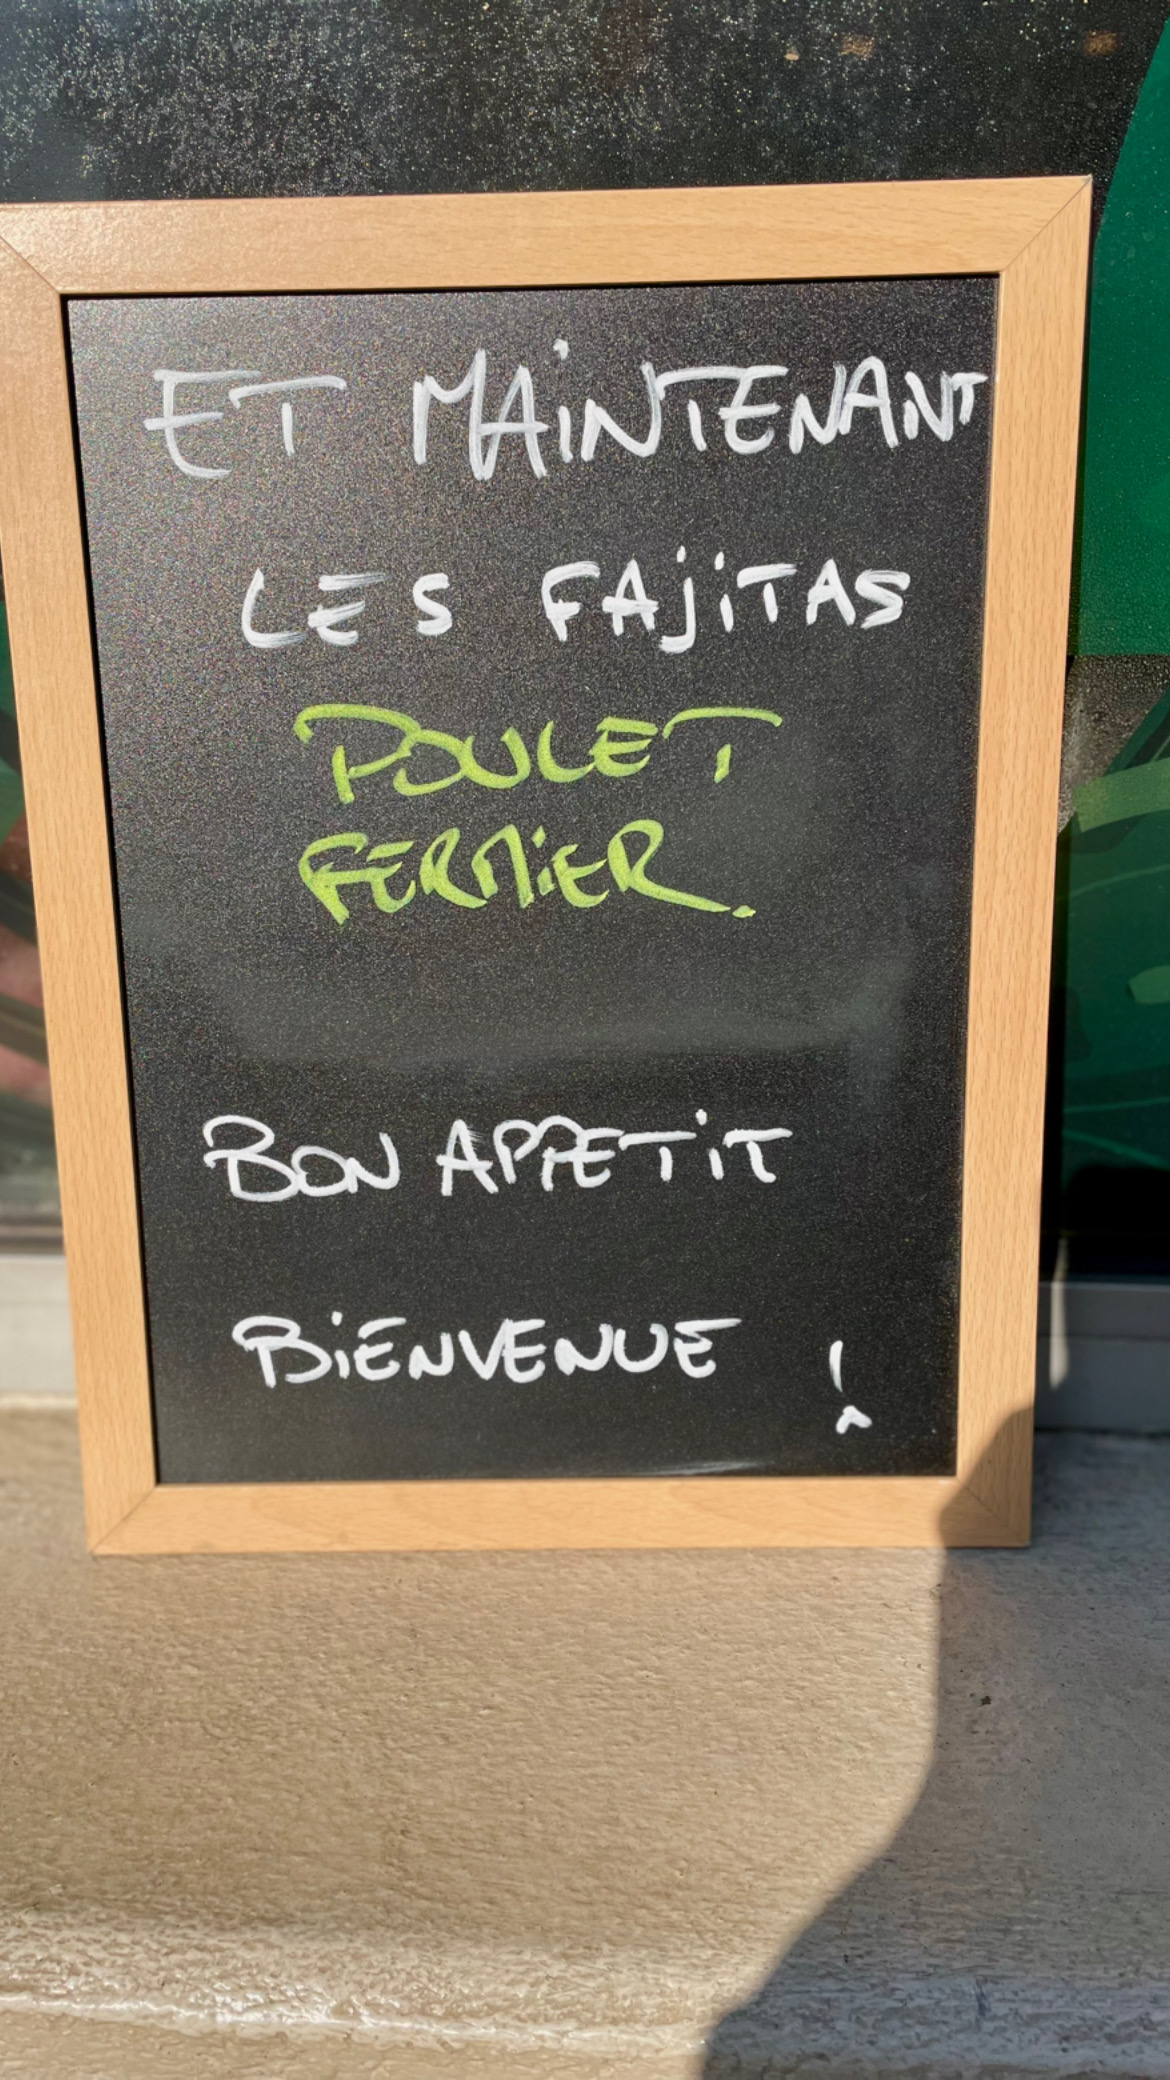 ET MAINTENANT
LES FAJITAS
POULET
FERMIER.
BON APPETIT
BIENVENUE !